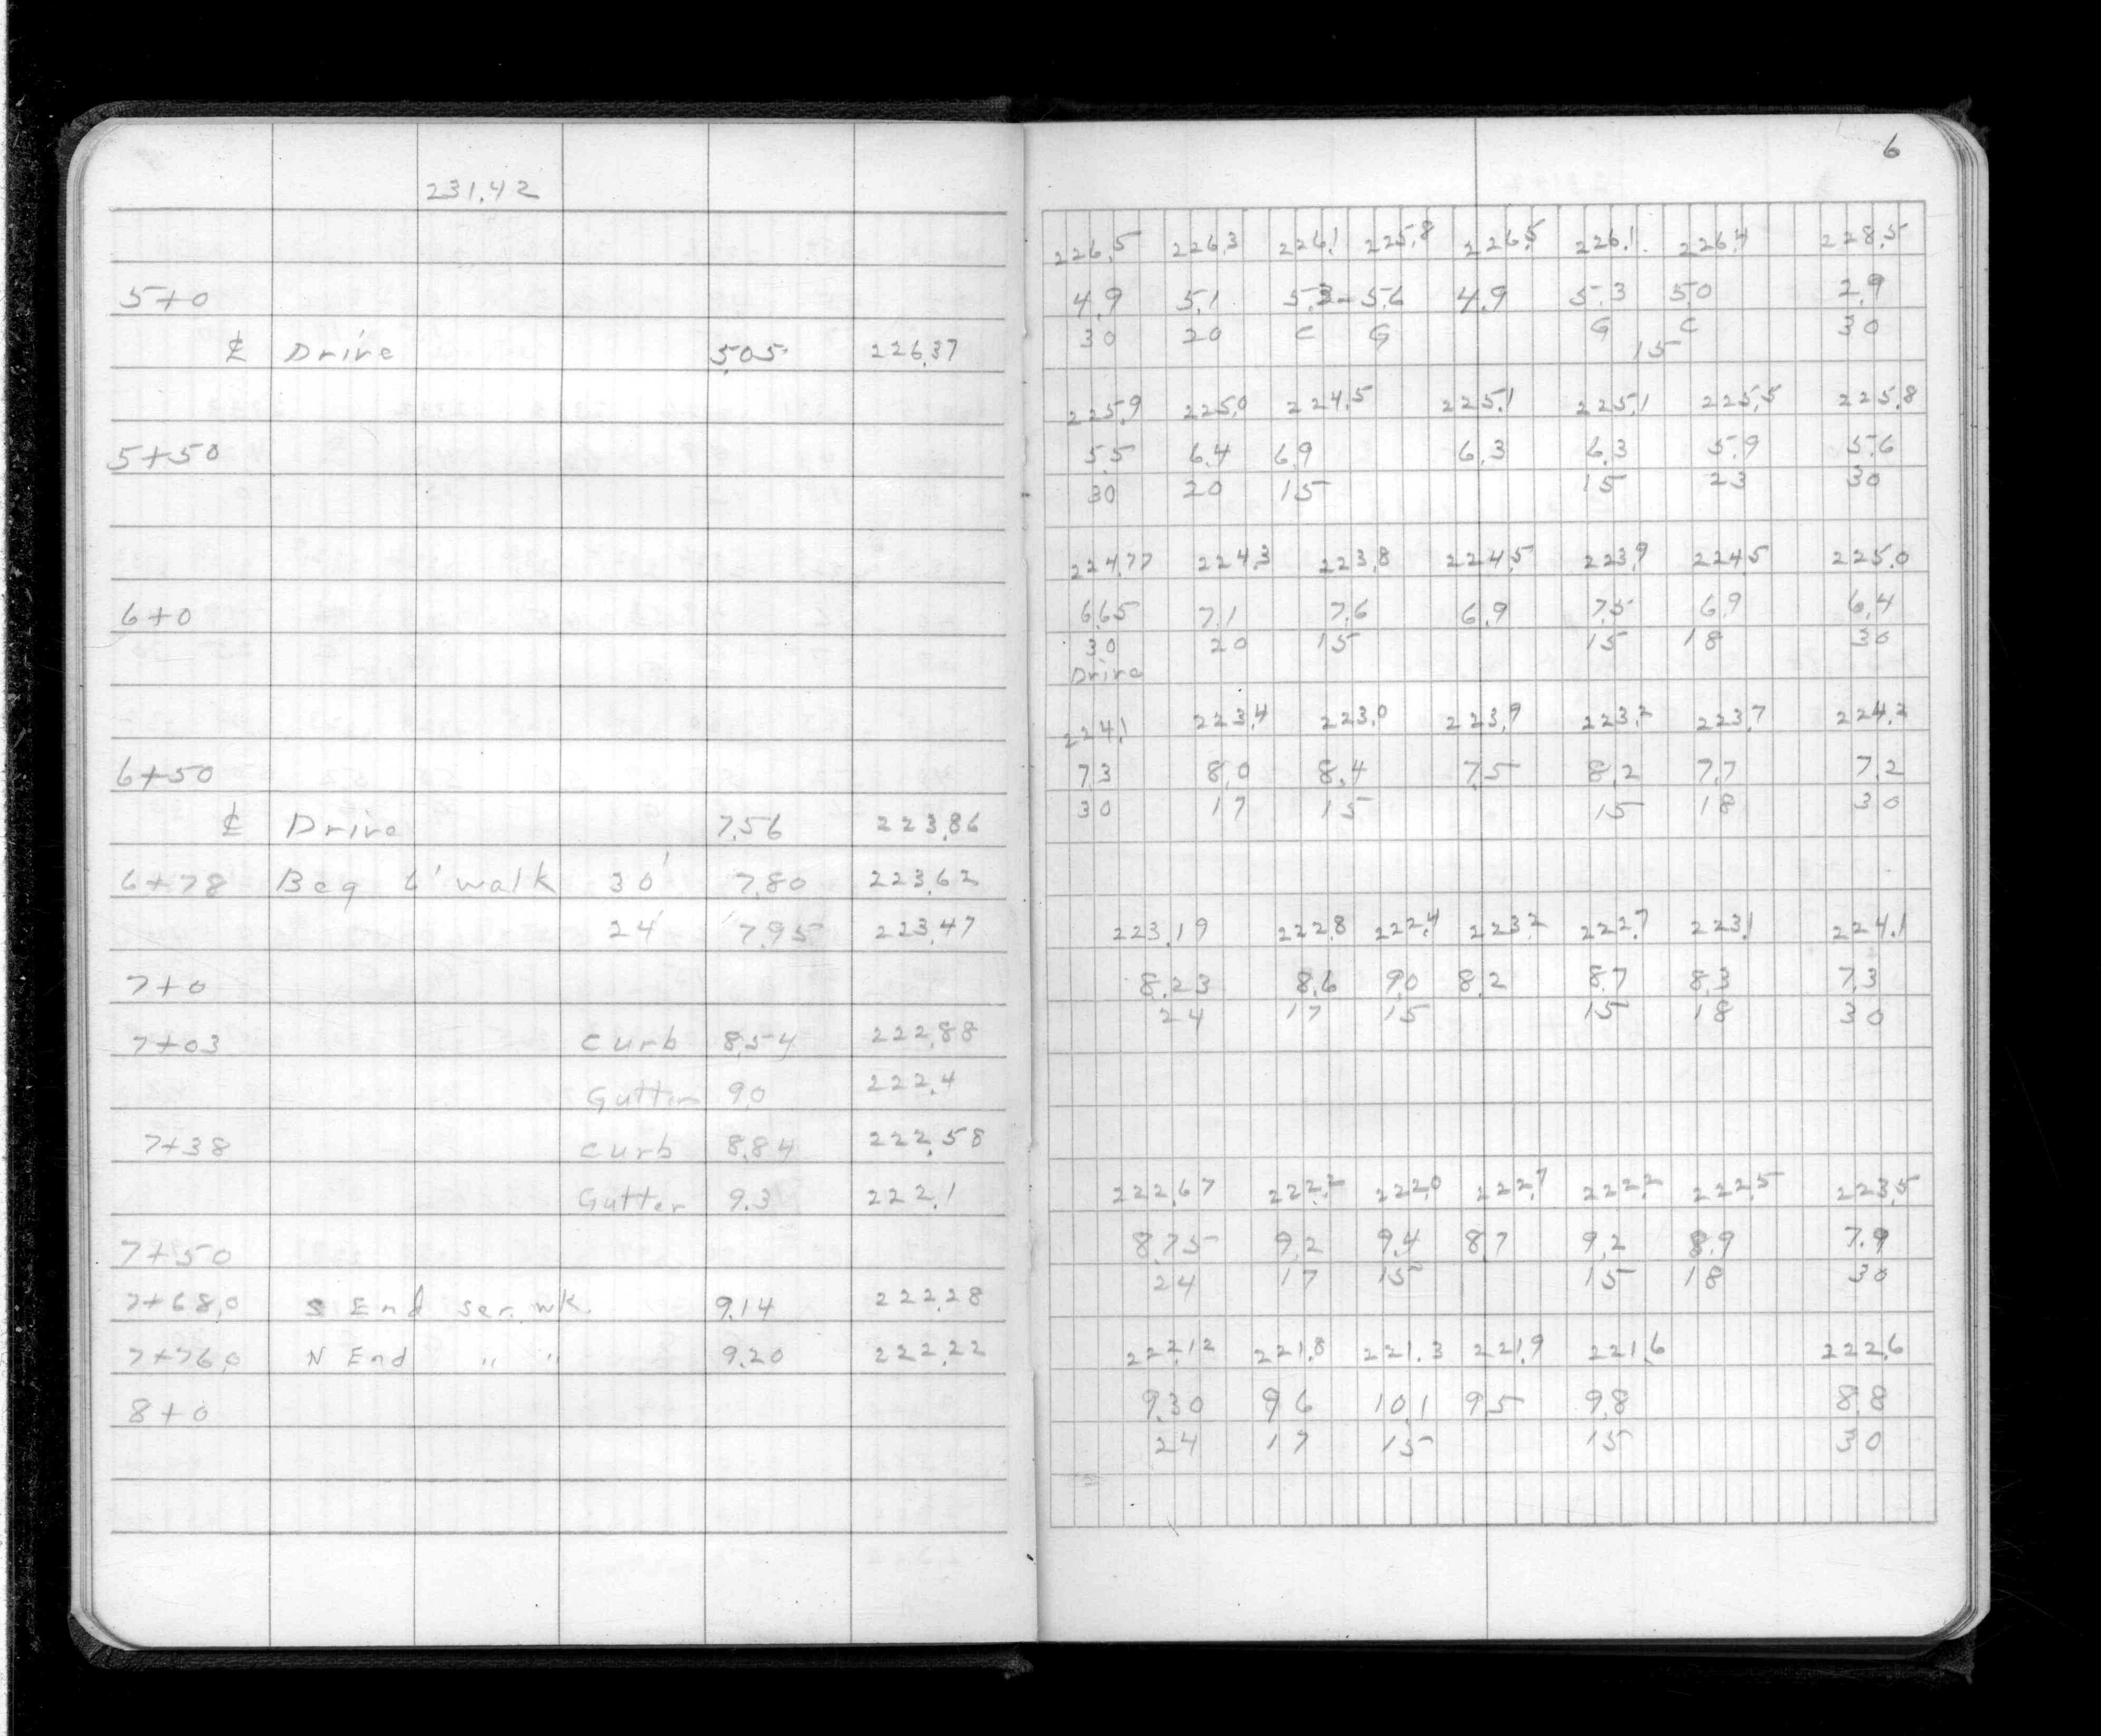 231.42
5+0
℄ Drive 5.05 226.37
5+50
6+0
6+50
℄ Drive 7.56 223.86
6+78 Beg 6' walk 30' 7.80 223.62
24' 7.95 223.47
7+0
7+03 Curb 8.54 222.88
Gutter 9.0 222.4
7+38 Curb 8.84 222.58
Gutter 9.3 222.1
7+50
7+68.0 S End ser. wk. 9.14 222.28
7+76.0 N End " " 9.20 222.22
8+0
6
226.5 226.3 226.1 225.8 226.5 226.1 226.4 228.5
4.9 5.1 5.3 - 5.6 4.9 5.3 5.0 2.9
30 20 C G G C 30
15
225.9 225.0 224.5 225.1 225.1 225.5 225.8
5.5 6.4 6.9 6.3 6.3 5.9 5.6
30 20 15 15 23 30
224.77 224.3 223.8 224.5 223.9 224.5 225.0
6.65 7.1 7.6 6.9 7.5 6.9 6.4
30 20 15 15 18 30
Drive
224.1 223.4 223.0 223.9 223.2 223.7 224.2
7.3 8.0 8.4 7.5 8.2 7.7 7.2
30 17 15 15 18 30
223.19 222.8 222.4 223.2 222.7 223.1 224.1
8.23 8.6 9.0 8.2 8.7 8.3 7.3
24 17 15 15 18 30
222.67 222.2 222.0 222.7 222.2 222.5 223.5
8.75 9.2 9.4 8.7 9.2 8.9 7.9
24 17 15 15 18 30
222.12 221.8 221.3 221.9 221.6 222.6
9.30 9.6 10.1 9.5 9.8 8.8
24 17 15 15 30